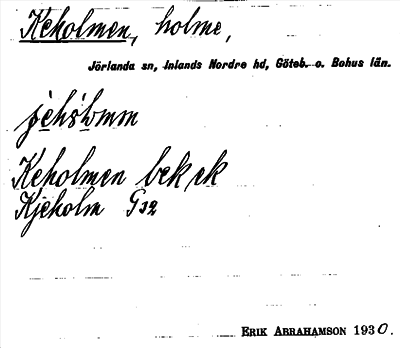 Keholmen, holme,
Jörlanda sn, Inlands Nordre hd, Göteb. o. Bohus län.
Keholmen bek ek
Kjeholm G32
ERIK ABRAHAMSON 1930.